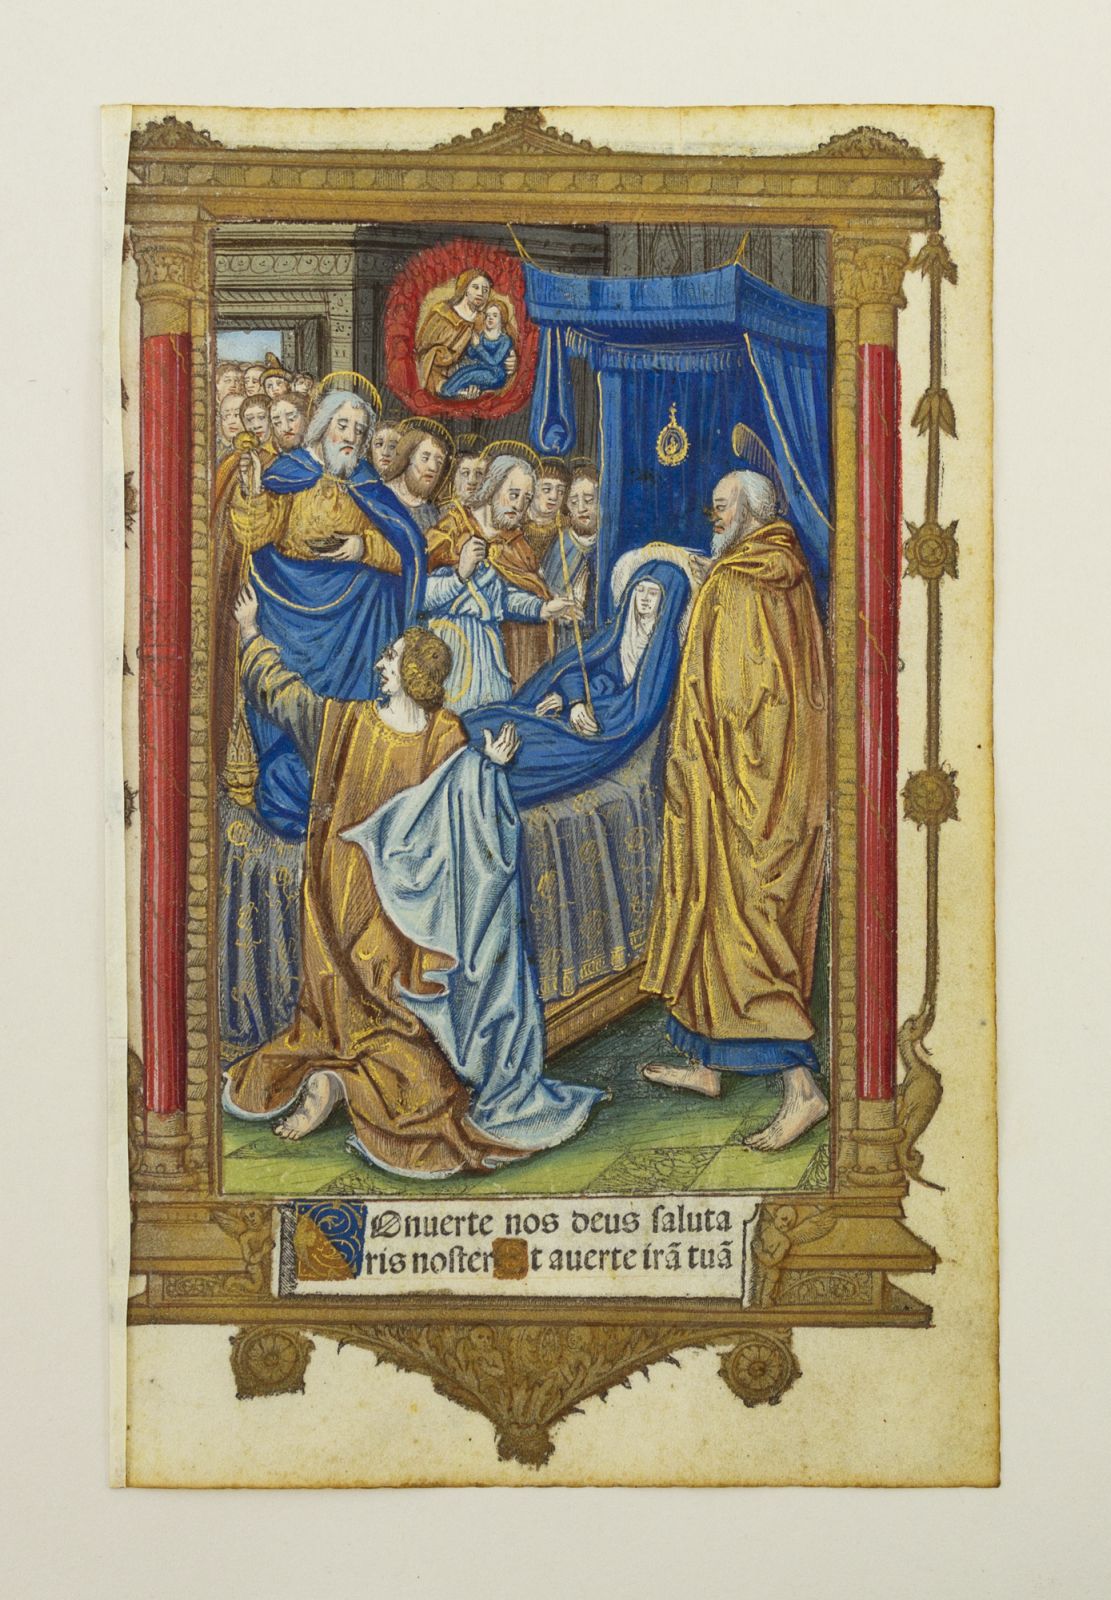 COnuerte nos deus saluta
ris noster Et auerte irã tuã